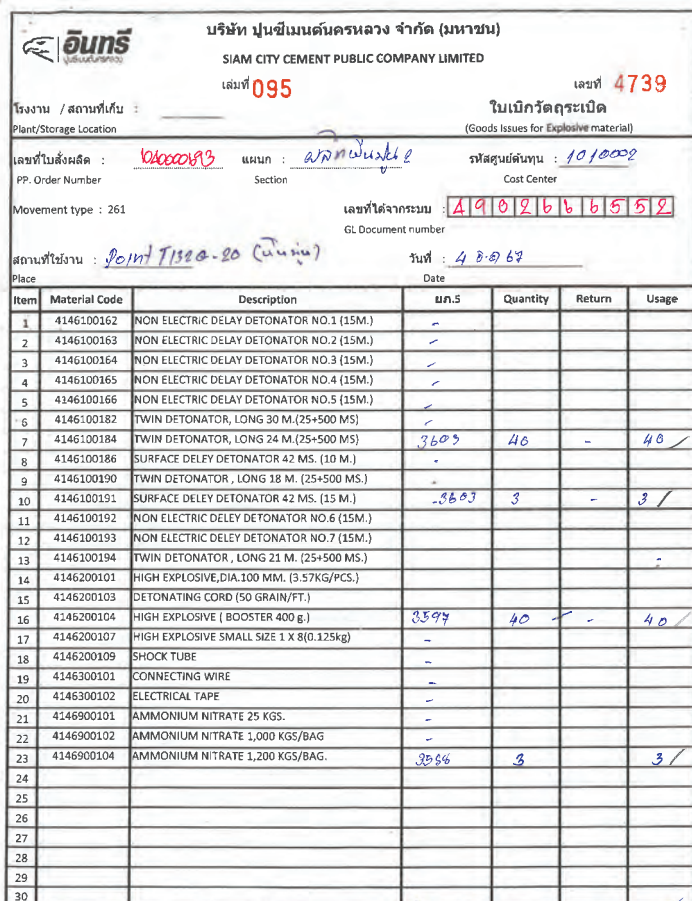 อินทรี
ปูนซีเมนต์นครหลวง
บริษัท ปูนซีเมนต์นครหลวง จำกัด (มหาชน)
SIAM CITY CEMENT PUBLIC COMPANY LIMITED
เล่มที่ 095 เลขที่ 4739
โรงงาน / สถานที่เก็บ : ใบเบิกวัตถุระเบิด
Plant/Storage Location (Goods Issues for Explosive material)
เลขที่ใบสั่งผลิต : แผนก : รหัสศูนย์ต้นทุน : 1010002
PP. Order Number Section Cost Center
Movement type : 261 เลขที่ได้จากระบบ : 4902666552
GL Document number
สถานที่ใช้งาน : Point วันที่ : 4 ธ.ค 67
Place Date
Item Material Code Description ยภ.5 Quantity Return Usage
1 4146100162 NON ELECTRIC DELAY DETONATOR NO.1 (15M.) -
2 4146100163 NON ELECTRIC DELAY DETONATOR NO.2 (15M.) -
3 4146100164 NON ELECTRIC DELAY DETONATOR NO.3 (15M.) -
4 4146100165 NON ELECTRIC DELAY DETONATOR NO.4 (15M.) -
5 4146100166 NON ELECTRIC DELAY DETONATOR NO.5 (15M.) -
6 4146100182 TWIN DETONATOR, LONG 30 M.(25+500 MS) -
7 4146100184 TWIN DETONATOR, LONG 24 M.(25+500 MS) 3603 40 - 40 /
8 4146100186 SURFACE DELEY DETONATOR 42 MS. (10 M.) -
9 4146100190 TWIN DETONATOR , LONG 18 M. (25+500 MS.) -
10 4146100191 SURFACE DELEY DETONATOR 42 MS. (15 M.) -3603 3 - 3 /
11 4146100192 NON ELECTRIC DELEY DETONATOR NO.6 (15M.)
12 4146100193 NON ELECTRIC DELEY DETONATOR NO.7 (15M.)
13 4146100194 TWIN DETONATOR , LONG 21 M. (25+500 MS.) -
14 4146200101 HIGH EXPLOSIVE,DIA.100 MM. (3.57KG/PCS.)
15 4146200103 DETONATING CORD (50 GRAIN/FT.)
16 4146200104 HIGH EXPLOSIVE ( BOOSTER 400 g.) 3597 40 - 40 /
17 4146200107 HIGH EXPLOSIVE SMALL SIZE 1 X 8(0.125kg) -
18 4146200109 SHOCK TUBE -
19 4146300101 CONNECTING WIRE -
20 4146300102 ELECTRICAL TAPE -
21 4146900101 AMMONIUM NITRATE 25 KGS. -
22 4146900102 AMMONIUM NITRATE 1,000 KGS/BAG -
23 4146900104 AMMONIUM NITRATE 1,200 KGS/BAG. 3 3 /
24
25
26
27
28
29
30